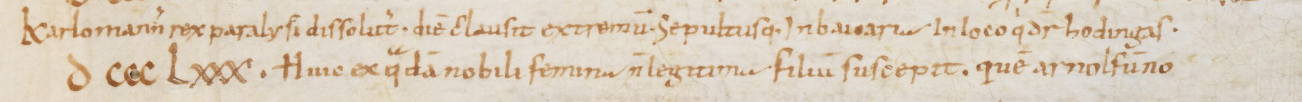 Karlomann᾽ rex paralysi dissolut᾽. diē clausit extremū. Sepultusq. In baioaria In loco q̇ dr̄ hodingas.
D CCC LXXX. Huic ex qͣdā nobili femina n̄ legitima filiū suscepit. quē arnolfū no